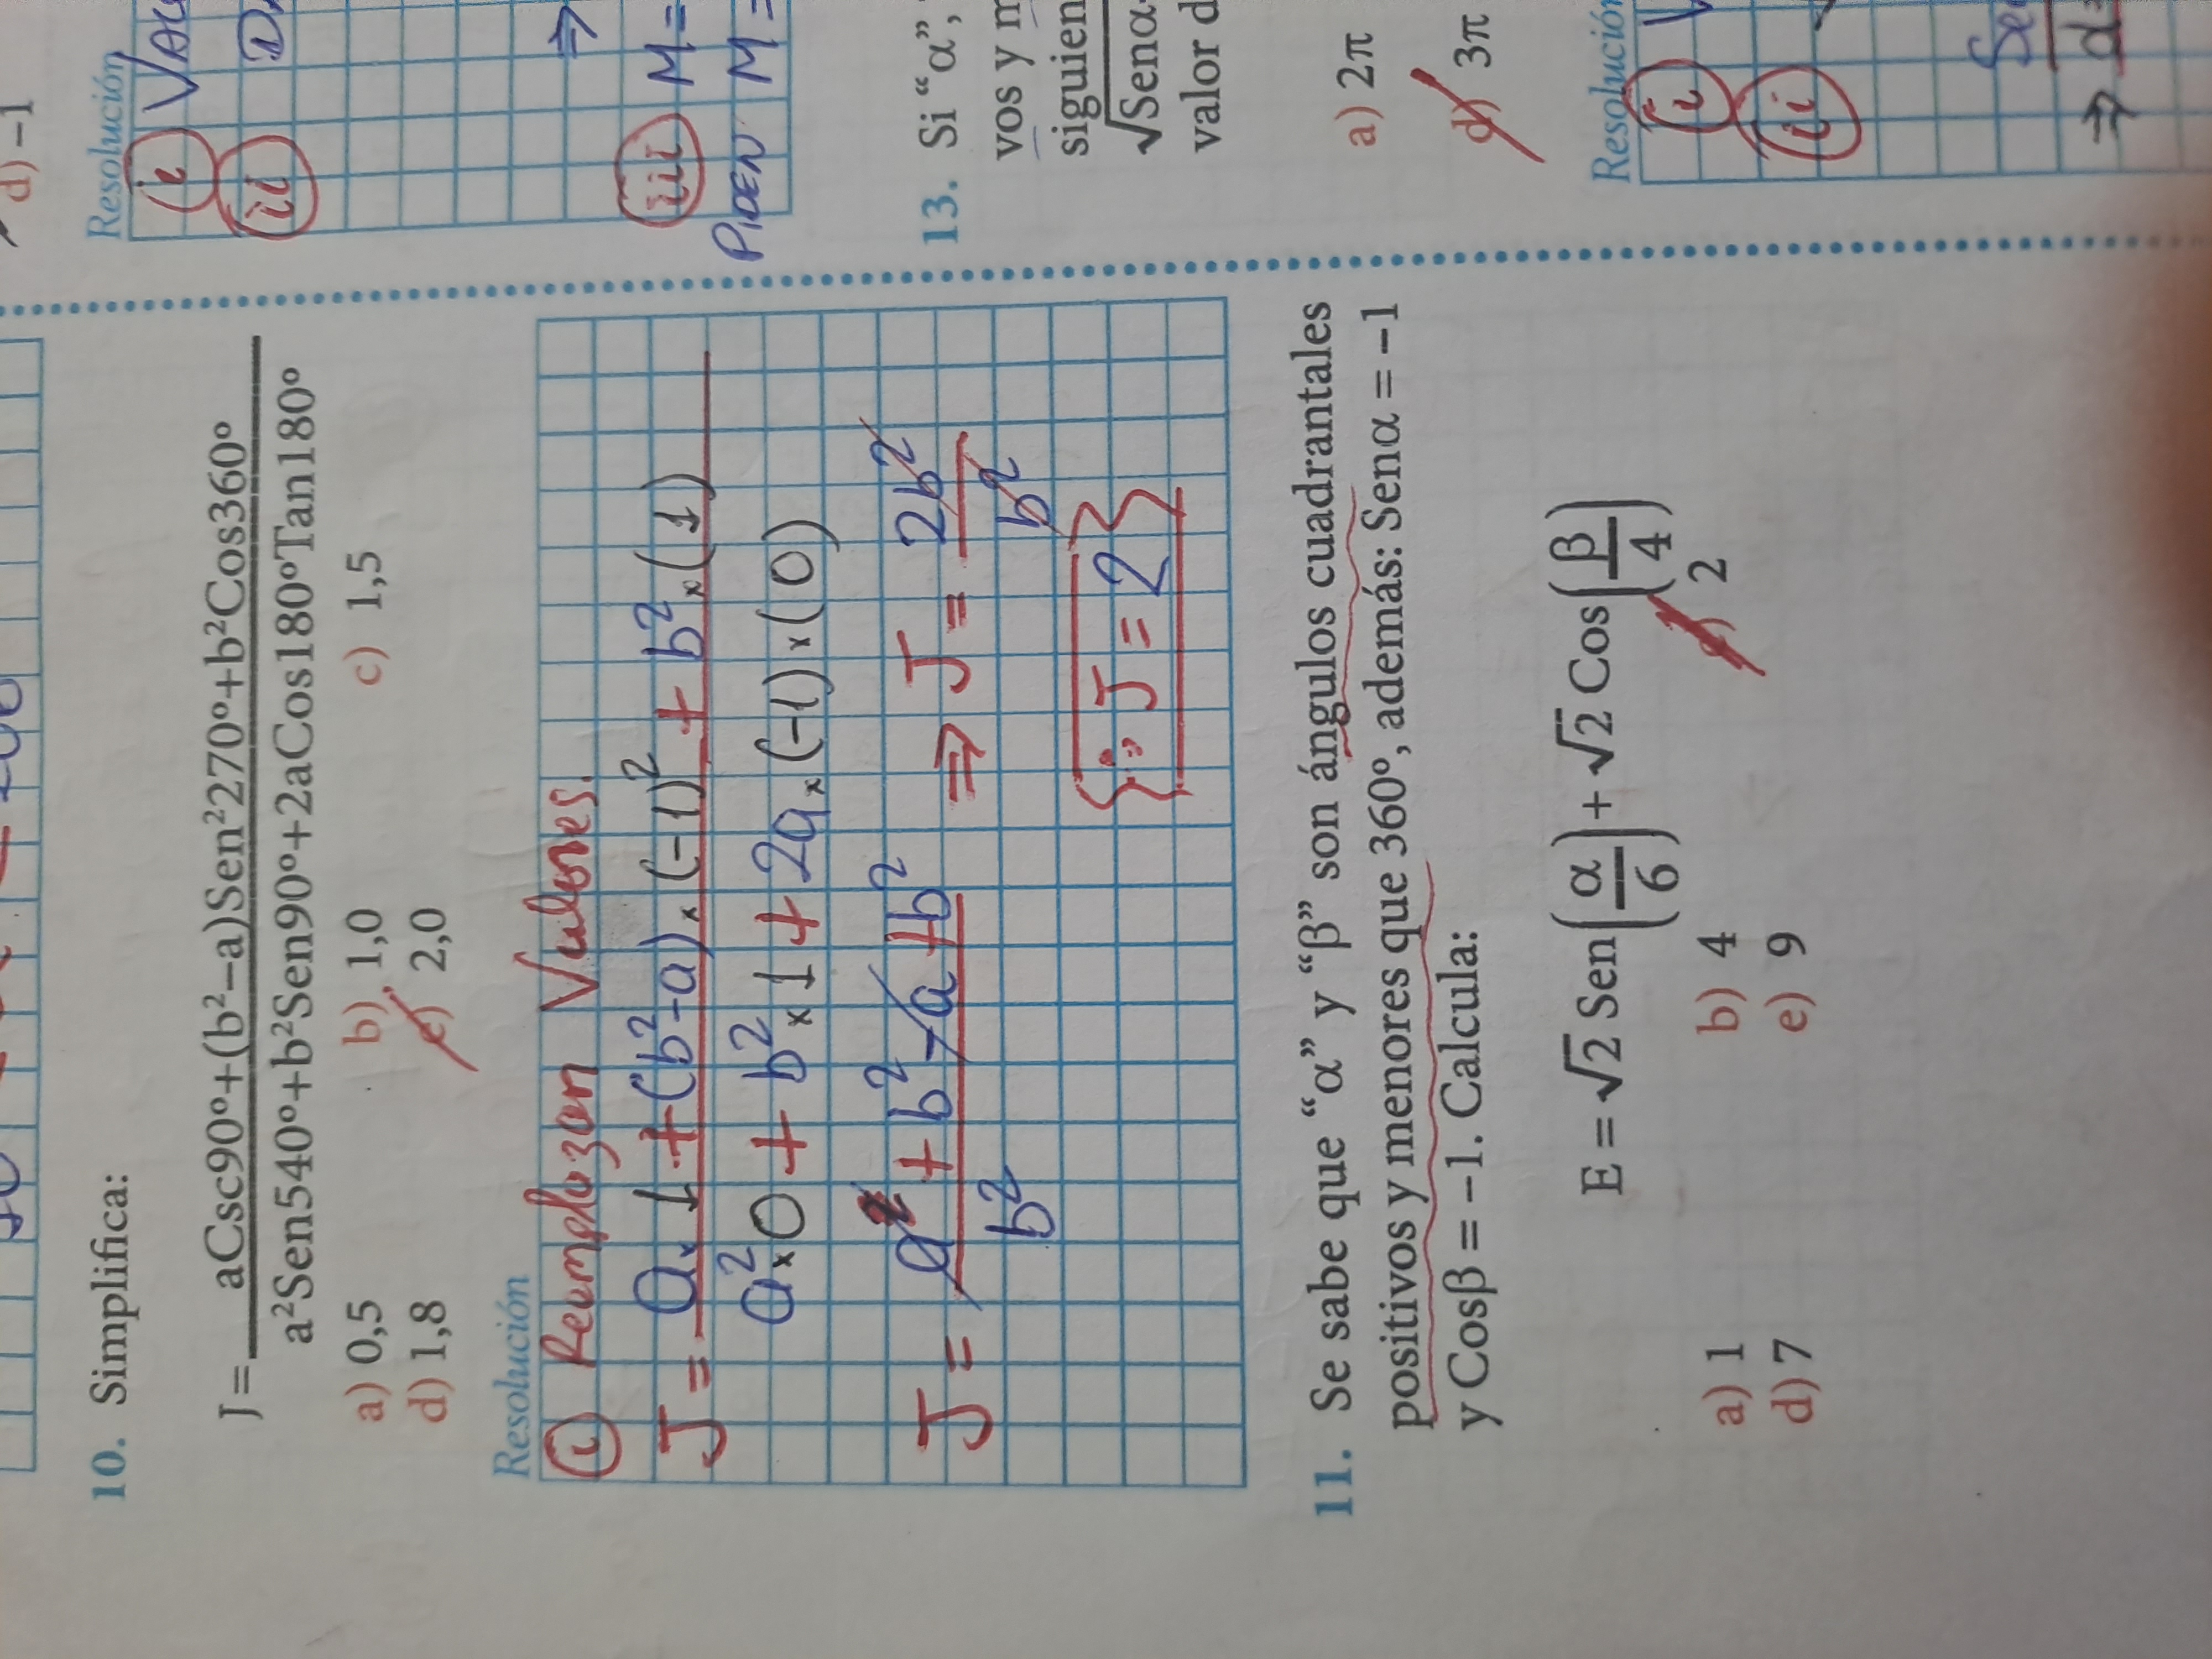 10. Simplifica:
J = aCsc90º+(b²–a)Sen²270º+b²Cos360º
a²Sen540º+b²Sen90º+2aCos180ºTan180º
a) 0,5 b) 1,0 c) 1,5
d) 1,8 e) 2,0
Resolución
i Reemplazan Valores.
J = a x 1 + (b²-a) x (-1)² + b² x (1)
a² x 0 + b² x 1 + 2a x (-1) x (0)
J = a + b² - a + b² ⇒ J = 2b²
b² b²
∴ J = 2
11. Se sabe que “α” y “β” son ángulos cuadrantales
positivos y menores que 360º, además: Senα = –1
y Cosβ = –1. Calcula:
E = √2 Sen(α/6) + √2 Cos(β/4)
a) 1 b) 4 c) 2
d) 7 e) 9
d) –1
Resolución
i
ii
⇒
iii M =
PIDEN M =
13. Si “α”,
vos y m
siguien
√Senα
valor d
a) 2π
d) 3π
Resolución
i
ii
Se
⇒ α =